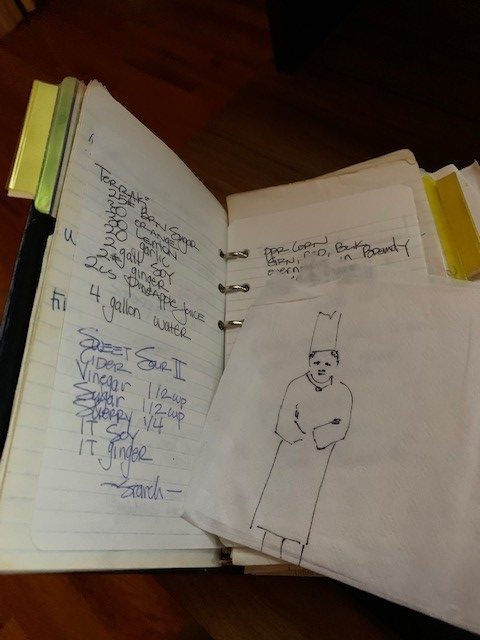 Teriyaki
25# Brn Sugar
30 orange
20 Lemon
20 garlic
2 gall Soy
2# ginger
2cs Pineapple Juice
4 gallon water
Sweet Sour II
Cider
Vinegar 1 1/2 cup
Sugar 1 1/2 cup
Sherry 1/4
1T Soy
1T ginger
—Starch—
PPR CORN
GRN, red, Black
in Brandy